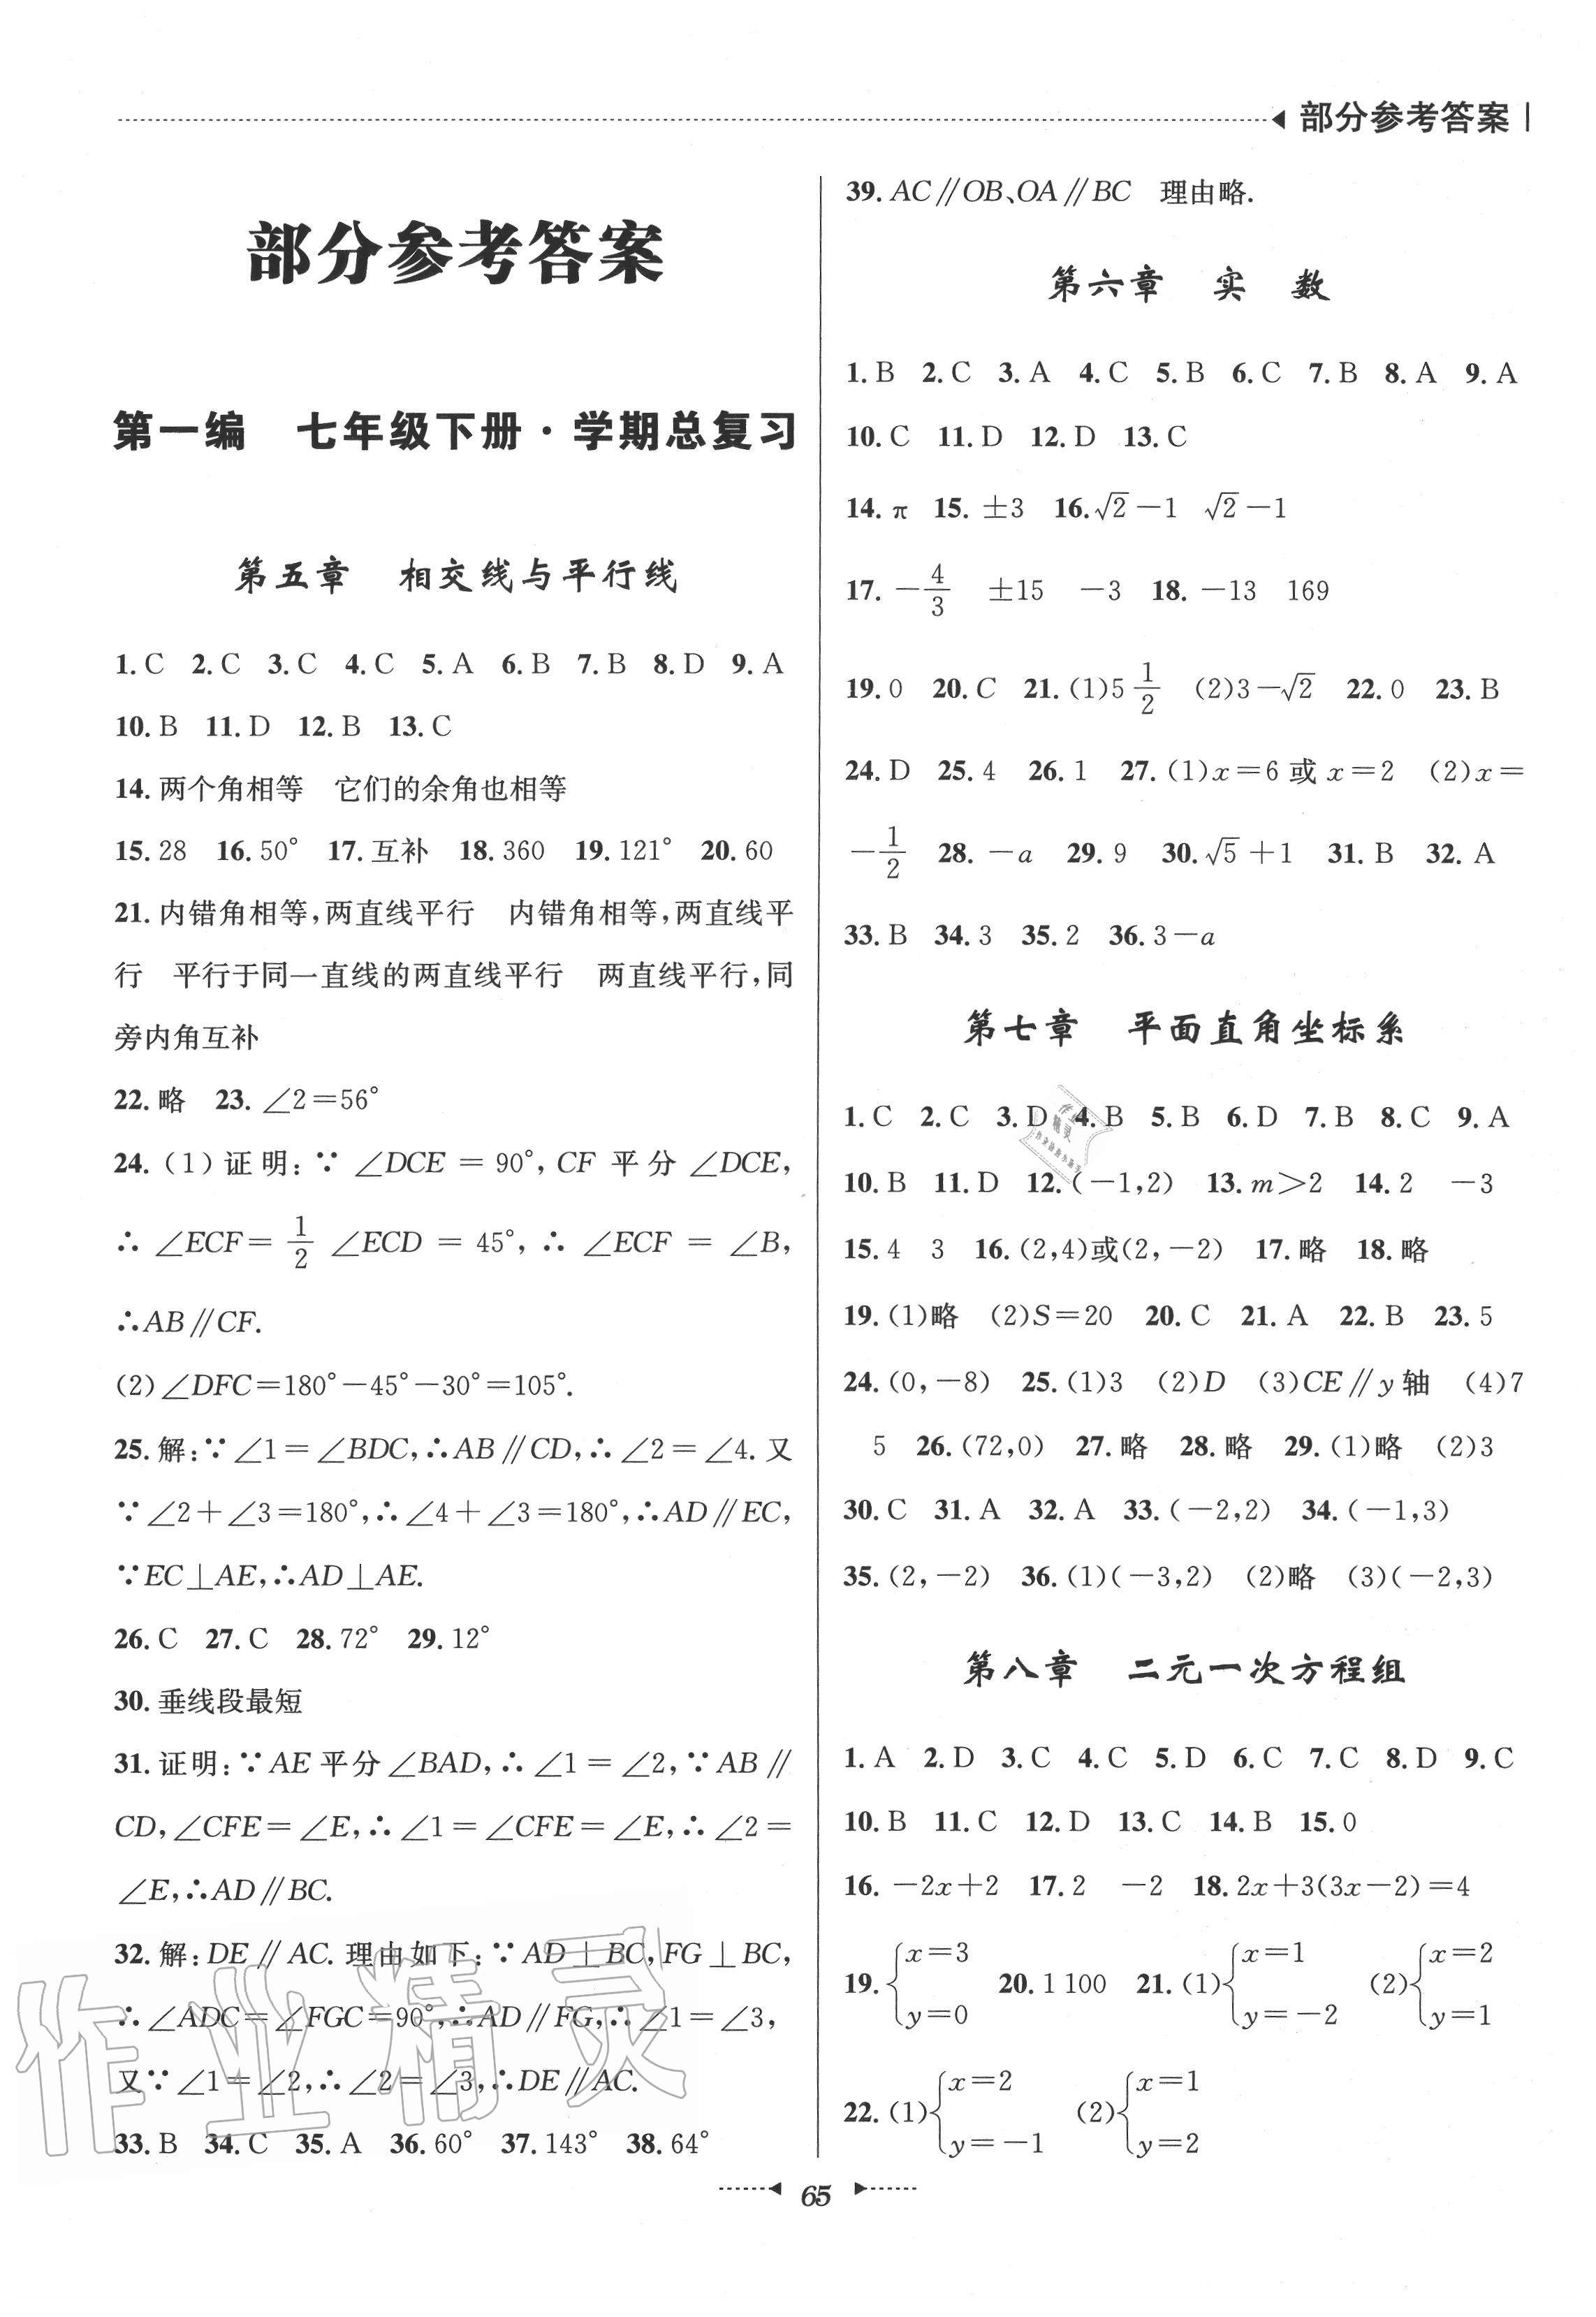 部分参考答案
部分参考答案
第一编 七年级下册·学期总复习
第五章 相交线与平行线
1. C 2. C 3. C 4. C 5. A 6. B 7. B 8. D 9. A
10. B 11. D 12. B 13. C
14. 两个角相等 它们的余角也相等
15. 28 16. 50° 17. 互补 18. 360 19. 121° 20. 60
21. 内错角相等,两直线平行 内错角相等,两直线平
行 平行于同一直线的两直线平行 两直线平行,同
旁内角互补
22. 略 23. ∠2=56°
24. (1)证明:∵ ∠DCE = 90°, CF 平分 ∠DCE,
∴ ∠ECF = 1/2 ∠ECD = 45°, ∴ ∠ECF = ∠B,
∴AB∥CF.
(2)∠DFC=180°-45°-30°=105°.
25. 解:∵∠1=∠BDC,∴AB∥CD,∴∠2=∠4. 又
∵∠2+∠3=180°,∴∠4+∠3=180°,∴AD∥EC,
∵EC⊥AE,∴AD⊥AE.
26. C 27. C 28. 72° 29. 12°
30. 垂线段最短
31. 证明:∵AE平分∠BAD,∴∠1=∠2,∵AB∥
CD,∠CFE=∠E,∴∠1=∠CFE=∠E,∴∠2=
∠E,∴AD∥BC.
32. 解:DE∥AC. 理由如下:∵AD⊥BC,FG⊥BC,
∴∠ADC=∠FGC=90°,∴AD∥FG,∴∠1=∠3,
又∵∠1=∠2,∴∠2=∠3,∴DE∥AC.
33. B 34. C 35. A 36. 60° 37. 143° 38. 64°
39. AC∥OB、OA∥BC 理由略.
第六章 实 数
1. B 2. C 3. A 4. C 5. B 6. C 7. B 8. A 9. A
10. C 11. D 12. D 13. C
14. π 15. ±3 16. √2-1 √2-1
17. -4/3 ±15 -3 18. -13 169
19. 0 20. C 21. (1)5 1/2 (2)3-√2 22. 0 23. B
24. D 25. 4 26. 1 27. (1)x=6或x=2 (2)x=
-1/2 28. -a 29. 9 30. √5+1 31. B 32. A
33. B 34. 3 35. 2 36. 3-a
第七章 平面直角坐标系
1. C 2. C 3. D 4. B 5. B 6. D 7. B 8. C 9. A
10. B 11. D 12. (-1,2) 13. m>2 14. 2 -3
15. 4 3 16. (2,4)或(2,-2) 17. 略 18. 略
19. (1)略 (2)S=20 20. C 21. A 22. B 23. 5
24. (0,-8) 25. (1)3 (2)D (3)CE∥y轴 (4)7
5 26. (72,0) 27. 略 28. 略 29. (1)略 (2)3
30. C 31. A 32. A 33. (-2,2) 34. (-1,3)
35. (2,-2) 36. (1)(-3,2) (2)略 (3)(-2,3)
第八章 二元一次方程组
1. A 2. D 3. C 4. C 5. D 6. C 7. C 8. D 9. C
10. B 11. C 12. D 13. C 14. B 15. 0
16. -2x+2 17. 2 -2 18. 2x+3(3x-2)=4
19. {x=3 y=0 20. 1 100 21. (1){x=1 y=-2 (2){x=2 y=1
22. (1){x=2 y=-1 (2){x=1 y=2
65
作业精灵